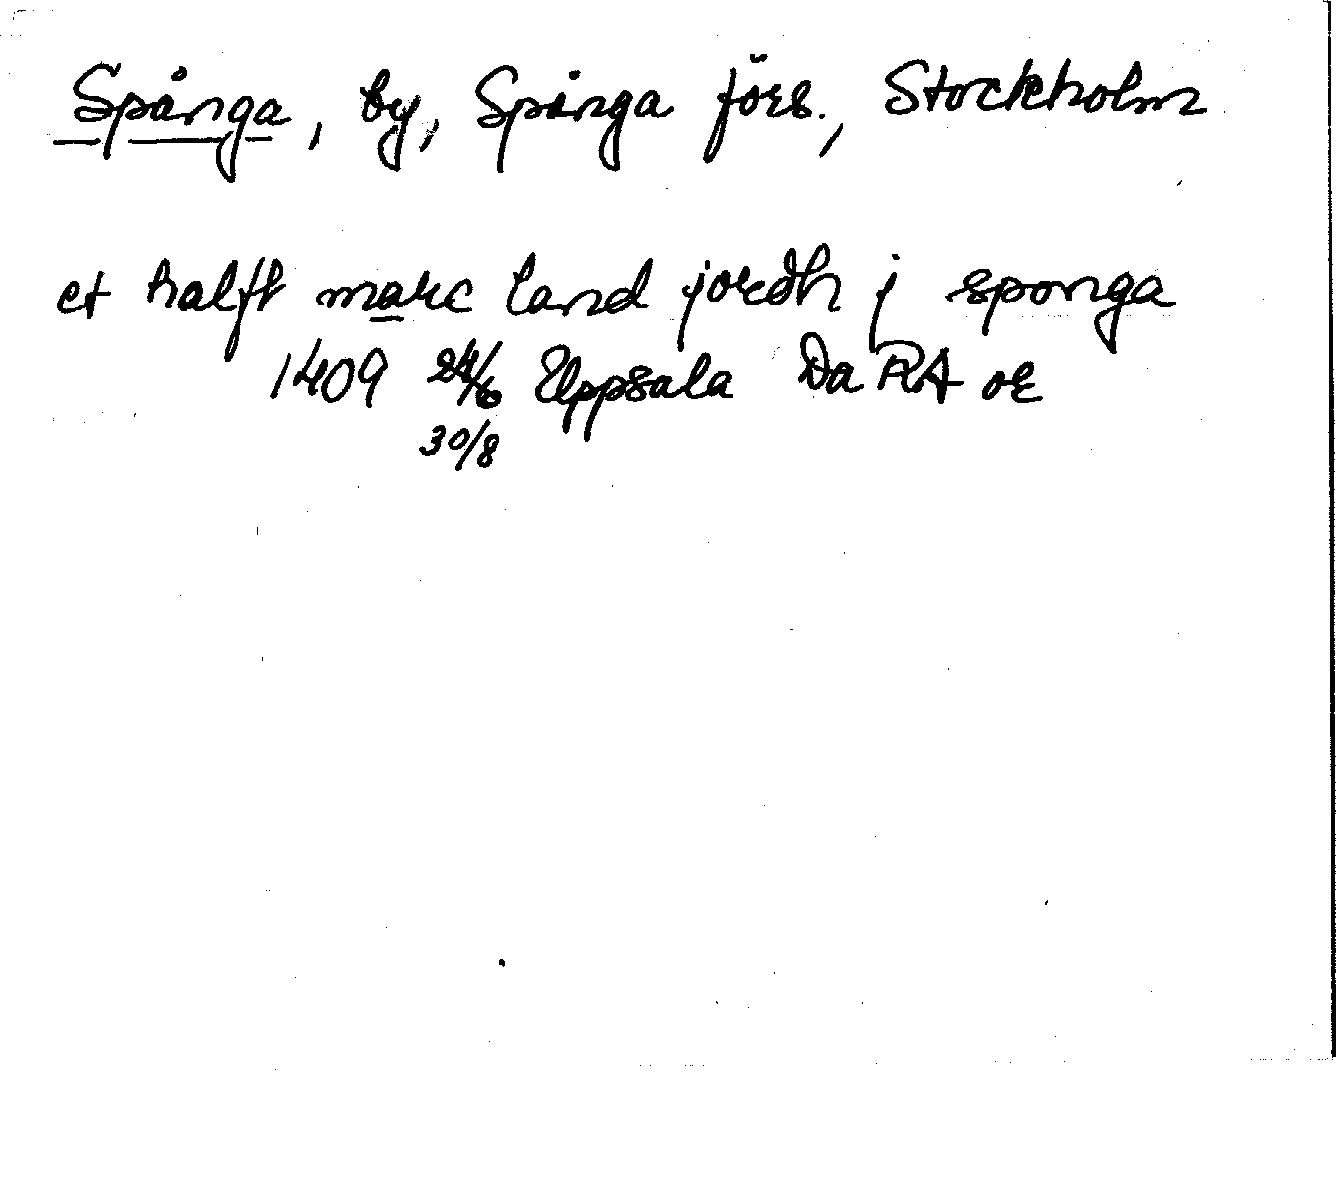 Spånga, by, Spånga förs., Stockholm
et halft marc land jordh j sponga
1409 24/6 Uppsala Da RA or
30/8